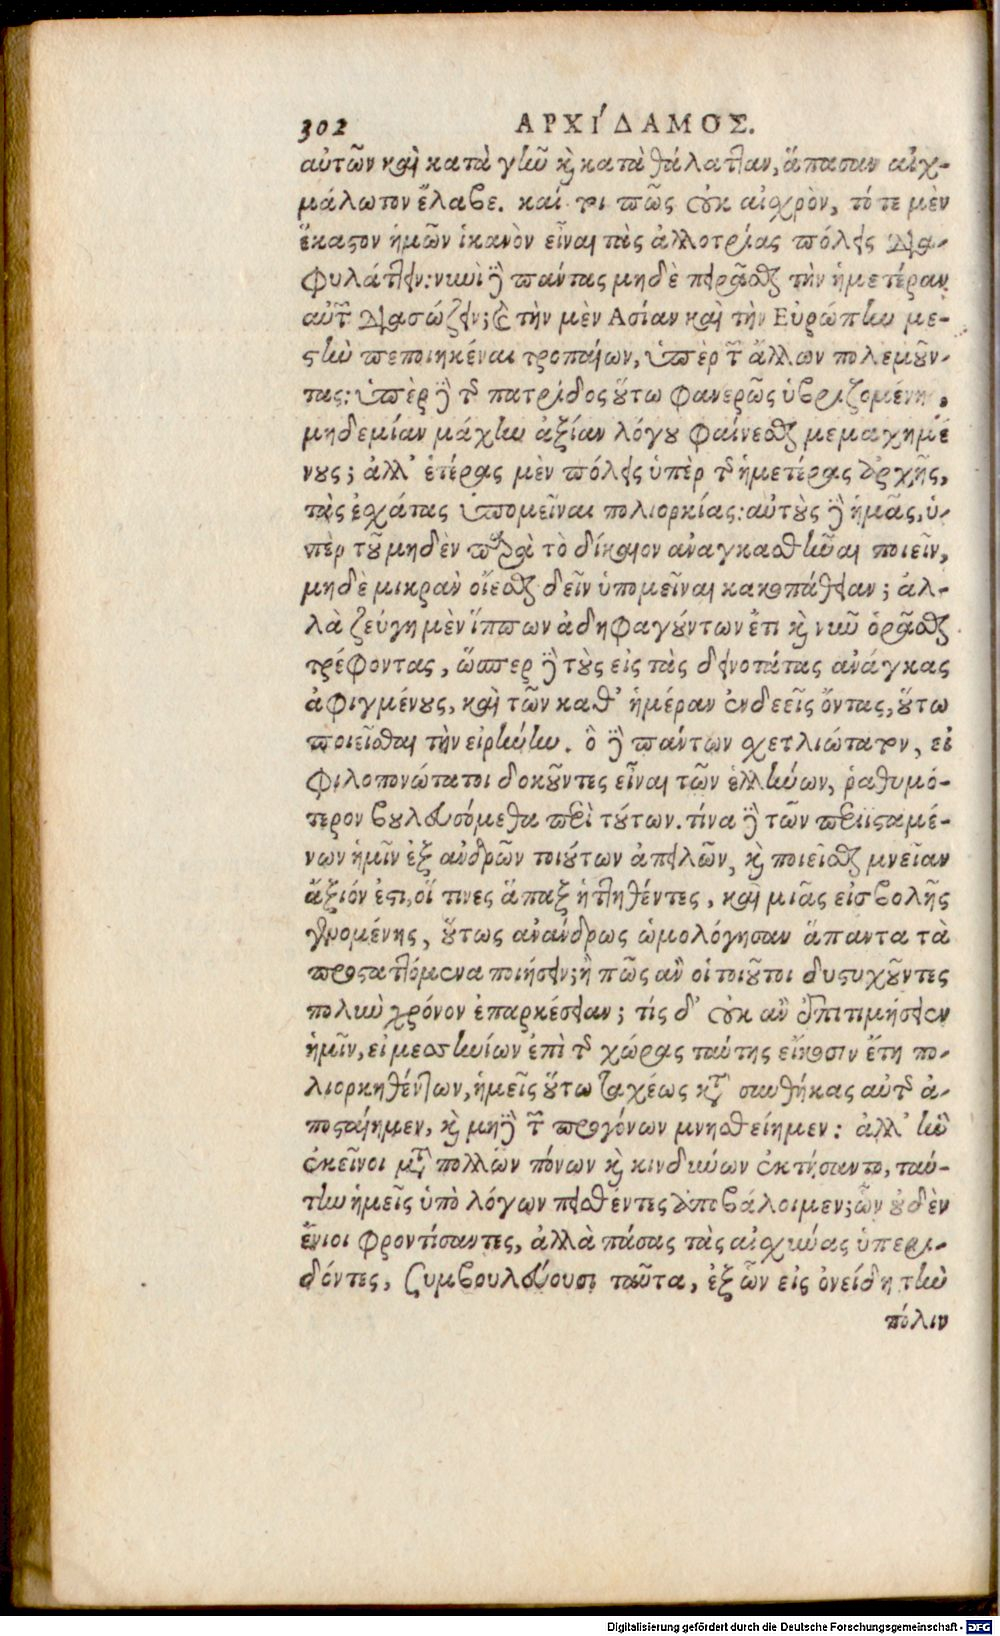 302 ΑΡΧΙ΄ΔΑΜΟΣ.
αὐτῶν καὶ κατὰ γῆν κὶ κατὰ θάλατταν, ἅπασαν αἰχ-
μάλωτον ἔλαβε. καί τοι πῶς οὐκ αἰσχρὸν, τότε μὲν
ἕκαστον ἡμῶν ἱκανὸν εἶναι τὰς ἀλλοτρίας πόλεις δια-
φυλάττειν: νυνὶ ἢ πάντας μηδὲ πειρᾶσθαι τὴν ἡμετέραν
αὐτῶν διασώζειν; κὶ τὴν μὲν Ασίαν καὶ τὴν Εὐρώπην με-
στὴν πεποιηκέναι τροπαίων, ὑπὲρ τῶν ἄλλων πολεμοῦν-
τας: ὑπὲρ ἢ τῆς πατρίδος οὕτω φανερῶς ὑβριζομένης,
μηδεμίαν μάχην ἀξίαν λόγου φαίνεσθαι μεμαχημέ
νους; ἀλλ' ἑτέρας μὲν πόλεις ὑπὲρ τῆς ἡμετέρας ἀρχῆς,
τὰς ἐσχάτας ὑπομεῖναι πολιορκίας: αὐτοὺς ἢ ἡμᾶς, ὑ-
πὲρ τοῦ μηδὲν παρὰ τὸ δίκαιον ἀναγκασθῆναι ποιεῖν,
μηδε μικρὰν οἴεσθαι δεῖν ὑπομεῖναι κακοπάθειαν; ἀλ-
λὰ ζεύγη μὲν ἵππων ἀδηφαγούντων ἔτι κὶ νῦν ὁρᾶσθαι
τρέφοντας, ὥσπερ ἢ τοὺς εἰς τὰς δεινοτάτας ἀνάγκας
ἀφιγμένους, καὶ τῶν καθ' ἡμέραν ἐνδεεῖς ὄντας, οὕτω
ποιεῖσθαι τὴν εἰρήνην. ὃ ἢ πάντων σχετλιώτατον, εἰ
φιλοπονώτατοι δοκοῦντες εἶναι τῶν ἑλλήνων, ῥαθυμό-
τερον βουλευσόμεθα περὶ τούτων. τίνα ἢ τῶν περιισταμέ-
νων ἡμῖν ἐξ ἀνδρῶν τοιούτων ἀπειλῶν, κὶ ποιεῖσθαι μνείαν
ἄξιόν ἐστι, οἵ τινες ἅπαξ ἡττηθέντες, καὶ μιᾶς εἰσβολῆς
γενομένης, οὕτως ἀνάνδρως ὡμολόγησαν ἅπαντα τὰ
προσαττόμενα ποιήσειν; ἢ πῶς ἂν οἱ τοιοῦτοι δυστυχοῦντες
πολὺν χρόνον ἐπαρκέσειαν; τίς δ' οὐκ ἂν ἐπιτιμήσειεν
ἡμῖν, εἰ μεσσηνίων ἐπὶ τῆς χώρας ταύτης εἴκοσιν ἔτη πο-
λιορκηθέντων, ἡμεῖς οὕτω ταχέως κατὰ συνθήκας αὐτῆς ἀ-
ποσταίημεν, κὶ μὴ ἢ τῶν προγόνων μνησθείημεν: ἀλλ' ἣν
ἐκεῖνοι μετὰ πολλῶν πόνων κὶ κινδύνων ἐκτήσαντο, ταύ-
την ἡμεῖς ὑπὸ λόγων πεισθέντες ἀποβάλοιμεν; ὧν οὐδὲν
ἔνιοι φροντίσαντες, ἀλλὰ πάσας τὰς αἰσχύνας ὑπερι-
δόντες, συμβουλεύουσι ταῦτα, ἐξ ὧν εἰς ὀνείδη τὴν
πόλιν
Digitalisierung gefördert durch die Deutsche Forschungsgemeinschaft - DFG